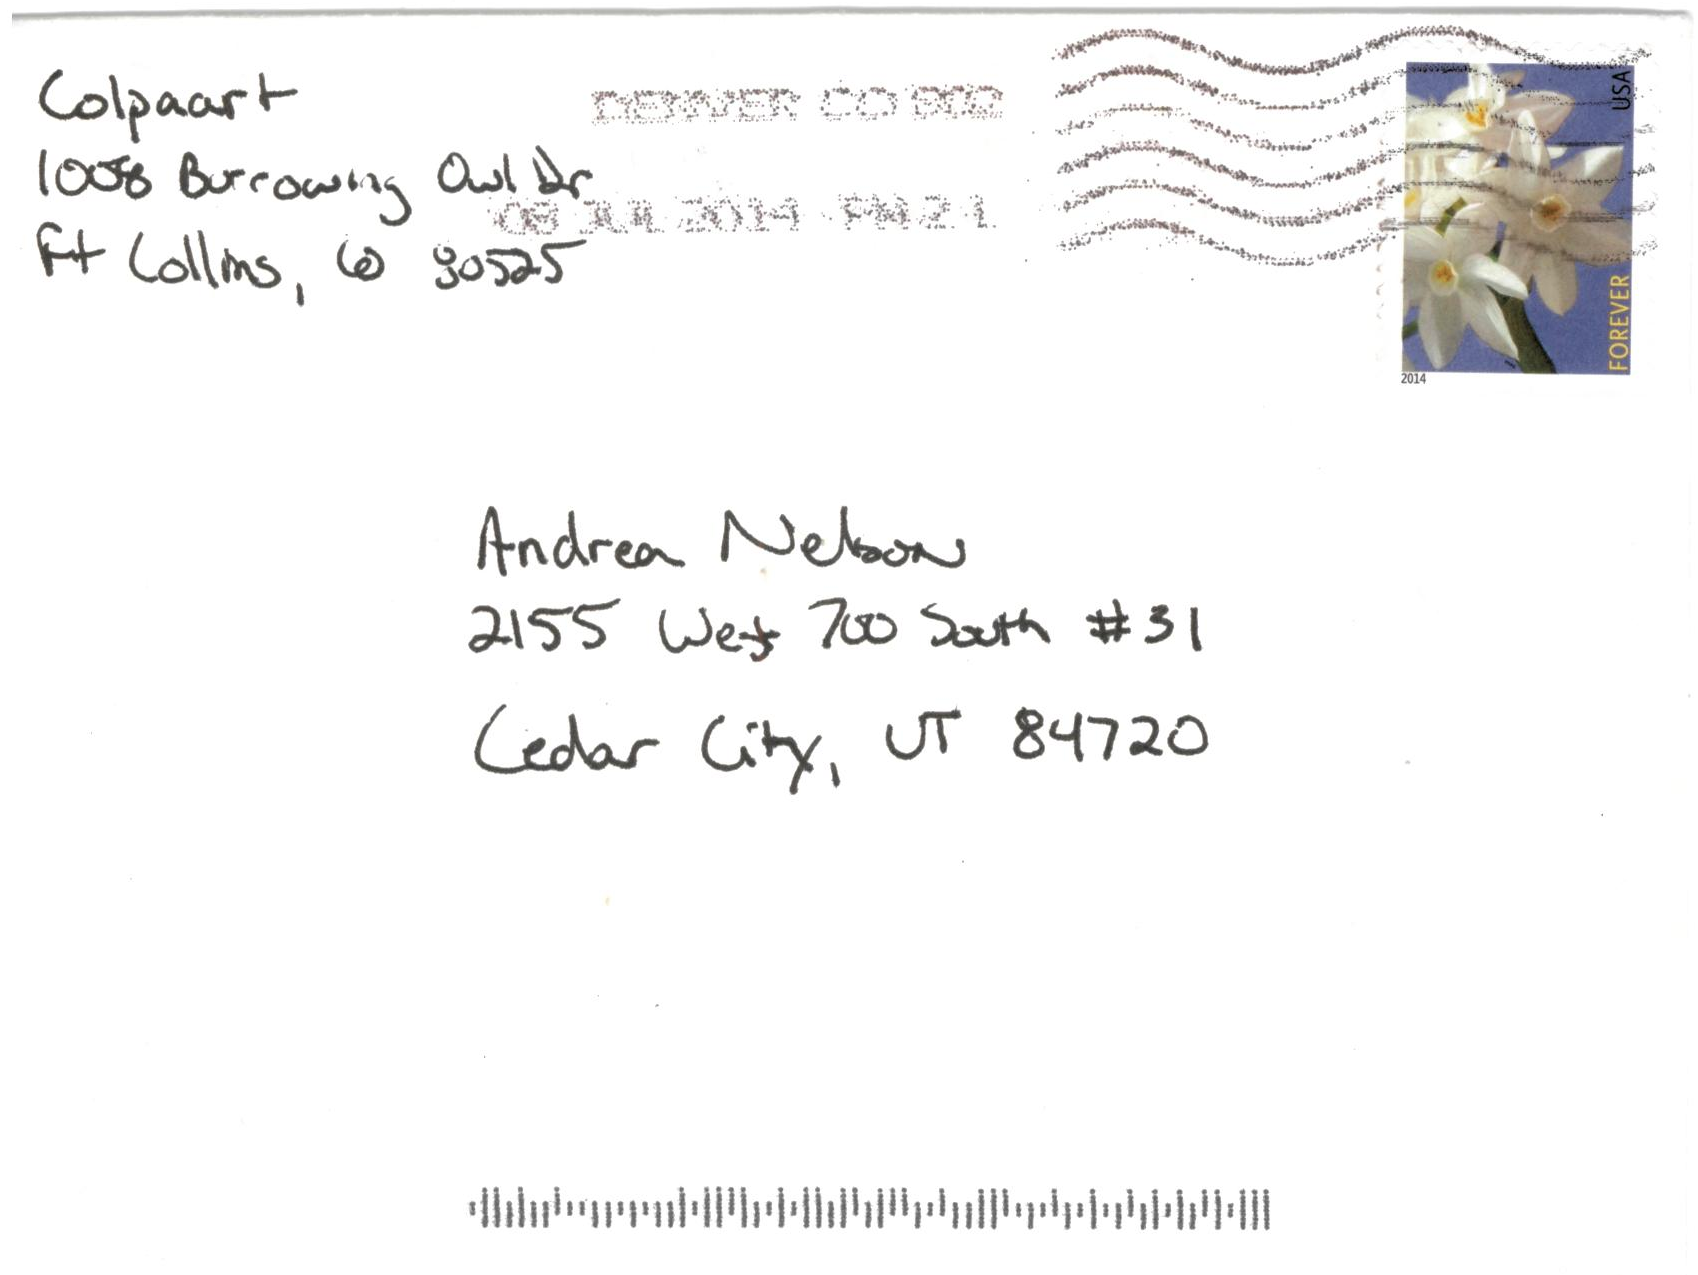 Colpaart
1008 Burrowing Owl Dr
Ft Collins, CO 80525
DENVER CO 802
08 JUL 2014 PM 2 L
USA
FOREVER
2014
Andrea Nelson
2155 West 700 South #31
Cedar City, UT 84720